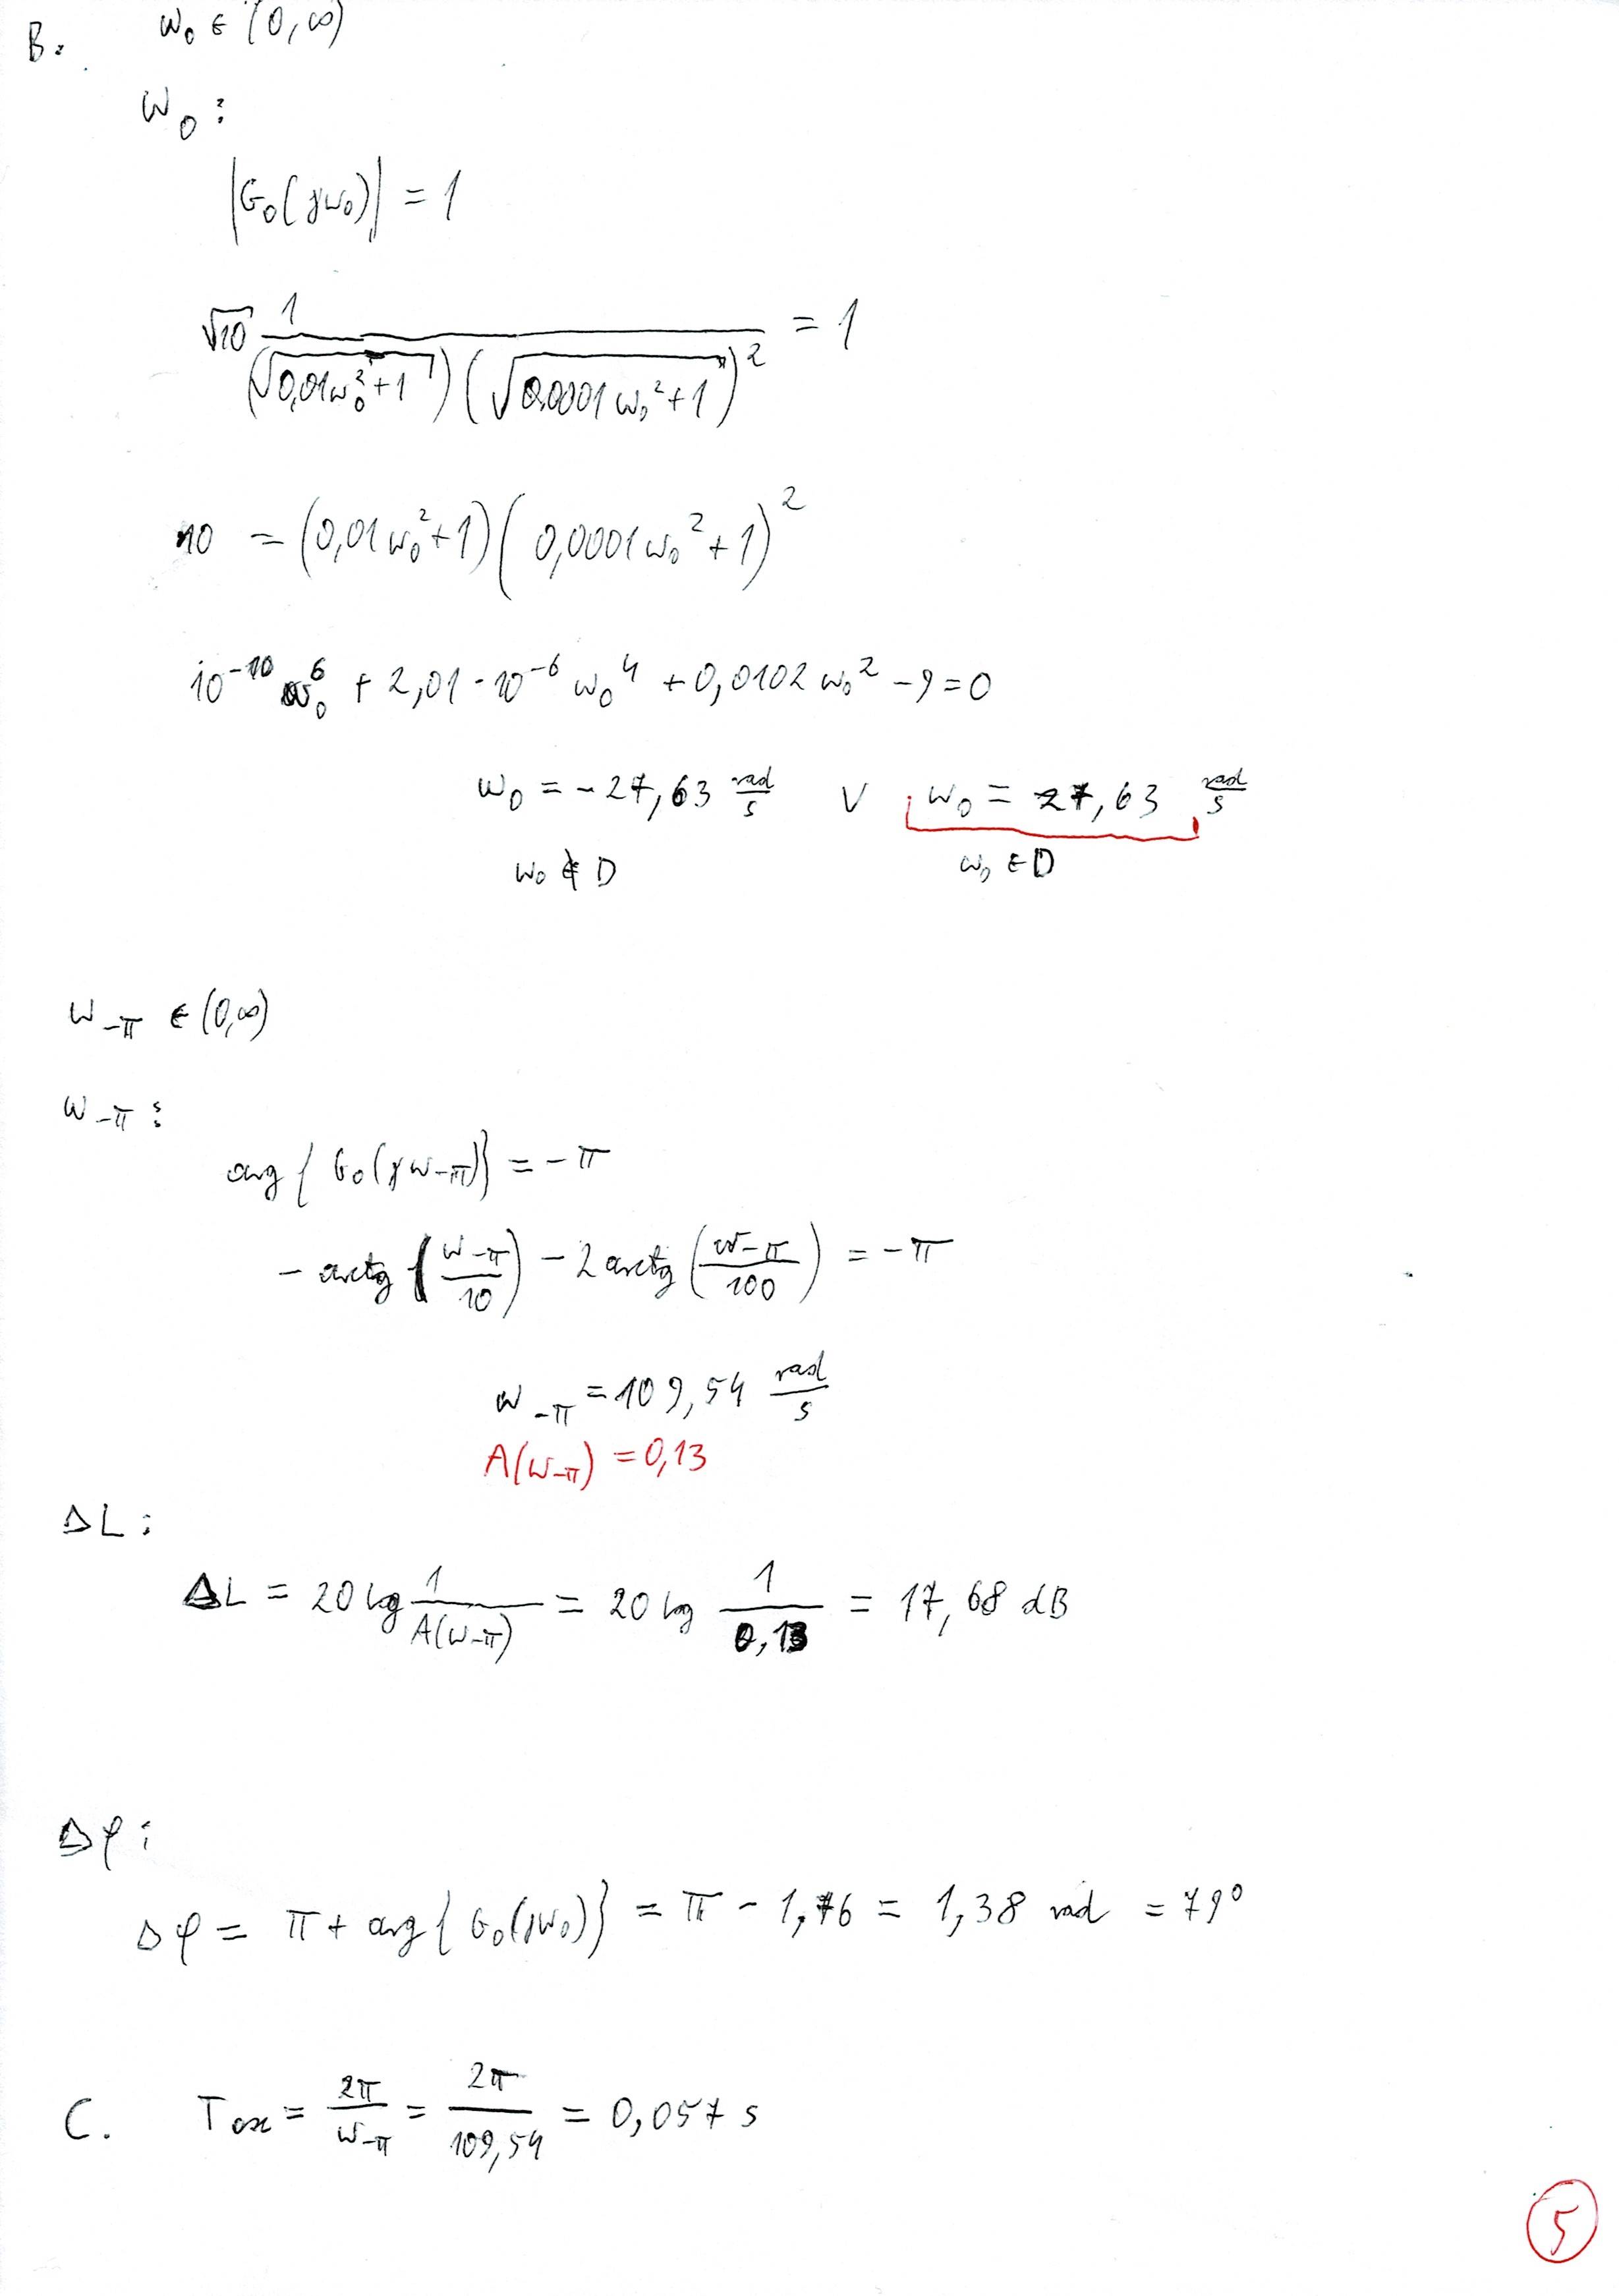 B. ω₀ ∈ (0,∞)
ω₀ :
|G₀(jω₀)| = 1
√10 1/((√(0,01ω₀²+1))(√(0,0001ω₀²+1))²) = 1
10 = (0,01ω₀²+1)(0,0001ω₀²+1)²
10⁻¹⁰ ω₀⁶ + 2,01·10⁻⁶ ω₀⁴ + 0,0102ω₀² − 9 = 0
ω₀ = −27,63 rad/s ∨ ω₀ = 27,63 rad/s
ω₀ ∉ D ω₀ ∈ D
ω_−π ∈ (0,∞)
ω_−π :
arg{G₀(jω_−π)} = −π
−arctg(ω_−π/10) − 2arctg(ω_−π/100) = −π
ω_−π = 109,54 rad/s
A(ω_−π) = 0,13
ΔL :
ΔL = 20 log 1/A(ω_−π) = 20 log 1/0,13 = 17,68 dB
Δφ :
Δφ = π + arg{G₀(jω₀)} = π − 1,76 = 1,38 rad = 79°
C. Tosc = 2π/ω_−π = 2π/109,54 = 0,057 s
5